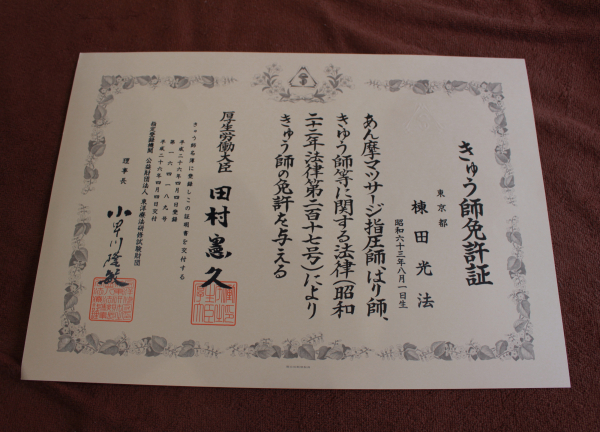 きゅう師免許証
東京都
棟田光法
昭和六十三年八月一日生
あん摩マッサージ指圧師、はり師、
きゅう師等に関する法律(昭和
二十二年法律第二百十七号)により
きゅう師の免許を与える
厚生労働大臣 田村憲久
きゅう師名簿に登録しこの証明書を交付する
平成二十六年四月四日登録
平成二十六年四月四日交付
指定登録機関 公益財団法人 東洋療法研修試験財団
理事長